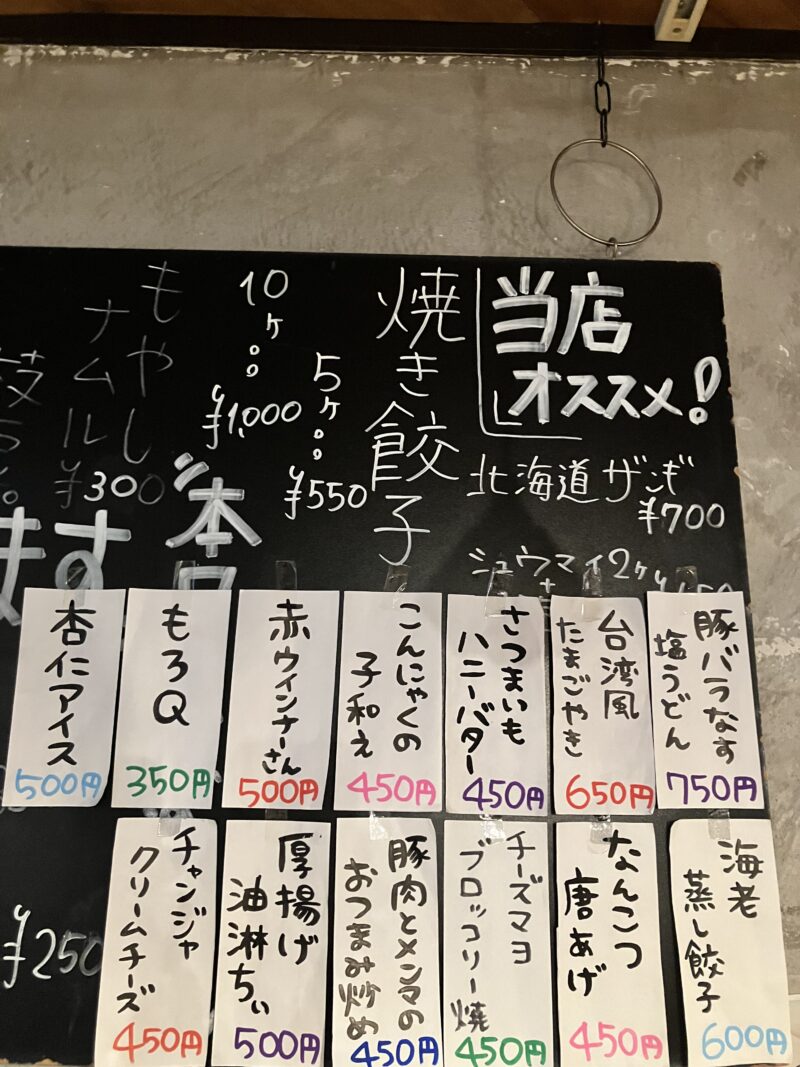 当店
オススメ!
北海道ザンギ
¥700
シュウマイ2ヶ
焼き餃子
5ヶ。。
¥550
10ヶ。。
¥1,000
もやし
ナムル
¥300
ます
¥250
豚バラなす
塩うどん
750円
台湾風
たまごやき
650円
さつまいも
ハニーバター
450円
こんにゃくの
子和え
450円
赤ウィンナーさん
500円
もろQ
350円
杏仁アイス
500円
海老
蒸し餃子
600円
なんこつ
唐あげ
450円
チーズマヨ
ブロッコリー焼
450円
豚肉とメンマの
おつまみ炒め
450円
厚揚げ
油淋ちぃ
500円
チャンジャ
クリームチーズ
450円